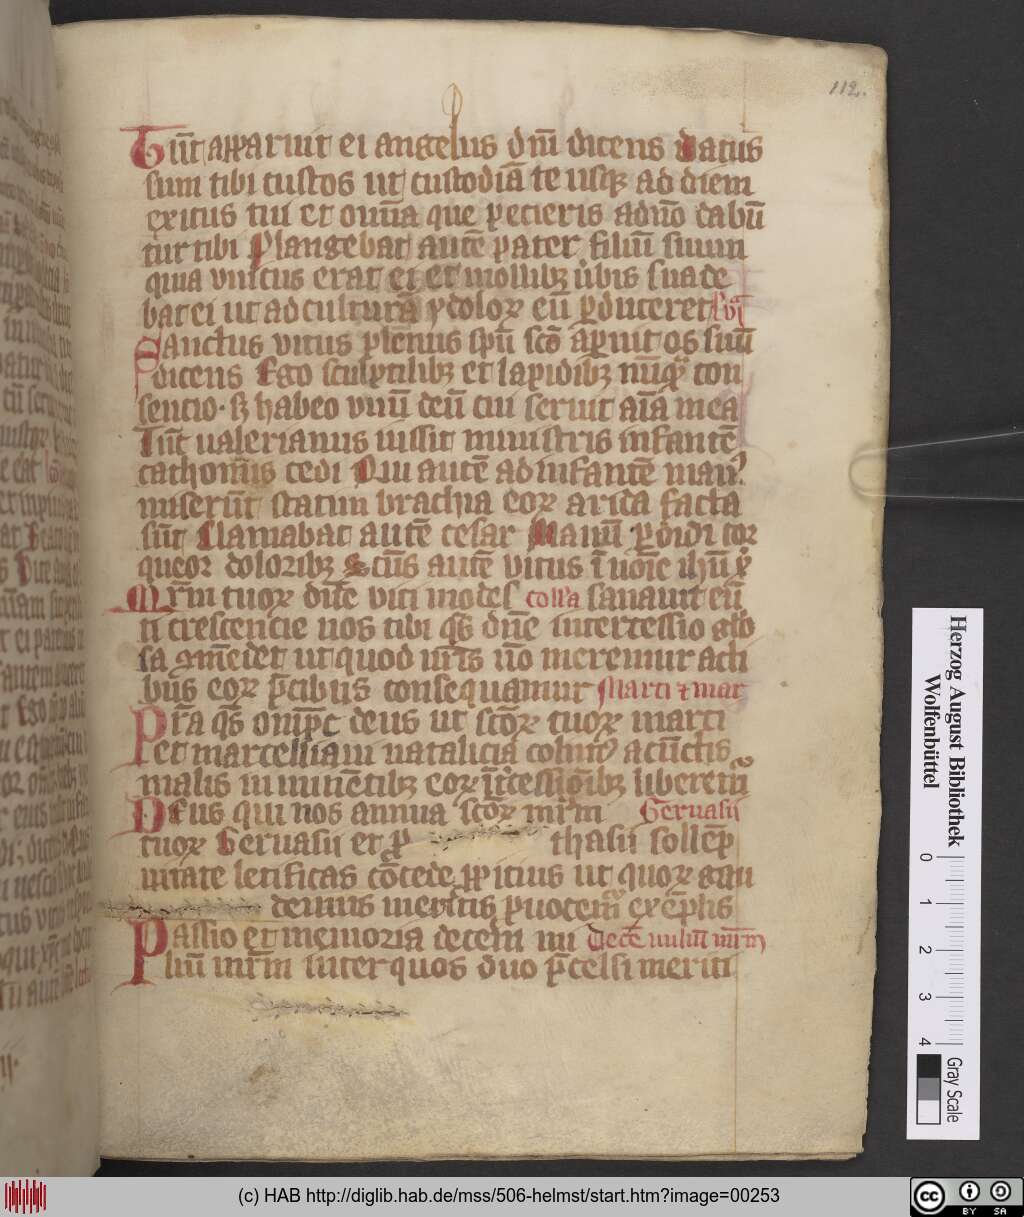 112.
Tūc apparuit ei angelus dn̄i dicens datus
sum tibi custos ut custodiā te usqꝫ ad diem
exitus tui et om̄ia que petieris a dn̄o dabū
tur tibi Plangebat autē pater filiū suum
quia unicus erat ei et mollibꝫ ūbis suade
bat ei ut ad culturā ydoloꝝ eū ꝑduceret
Sanctus vitus plenus spū sc̄o aperuit os suū
dicens Ego sculptilibꝫ et lapidibꝫ nūqͣ con
sencio. sꝫ habeo unū deū cui seruit aīa mea
Tūc ualerianus iussit ministris infantē
cathomis cedi Qui autē ad infantē manꝰ
miserūt statim brachia eoꝝ arida facta
sūt Clamabat autē cesar Manū ꝑdidi tor
queor doloribꝫ Sc̄us autē vitus ī noīe ih̄u xͥ
Mr̄m tuoꝝ dn̄e viti modes colla sanauit eū
ti crescencie nos tibi qs̄ dn̄e intercessio glo
sa om̄edet ut quod nr̄is nō meremur acti
bus eoꝝ p̄cibus consequamur Marci ⁊ mar
Pr̄a qs̄ omp̄c deus ut sc̄oꝝ tuoꝝ marci
et marcelliani natalicia colimꝰ a cūctis
malis iminētibꝫ eoꝝ īt̄cessiōibꝫ liberemꝰ
Deus qui nos annua sc̄oꝝ mr̄m Geruasii
tuoꝝ Geruasii et pro thasii sollēp
nitate letificas cōcede ꝓpitius ut quoꝝ gau
demus meritis ꝓuocemꝰ exēplis
Passio et memoria decem mi Decē miliū mr̄m
liū mr̄m inter quos duo p̄celsi meriti
Herzog August Bibliothek
Wolfenbüttel
0 1 2 3 4
Gray Scale
(c) HAB http://diglib.hab.de/mss/506-helmst/start.htm?image=00253
cc BY SA